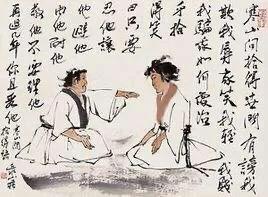 寒山问拾得世间有谤我
欺我辱我笑我轻我贱
我骗我如何处治
乎拾
得笑
曰只要
忍他让
他避他
由他耐他
敬他不要理他
再过几年你且看
他